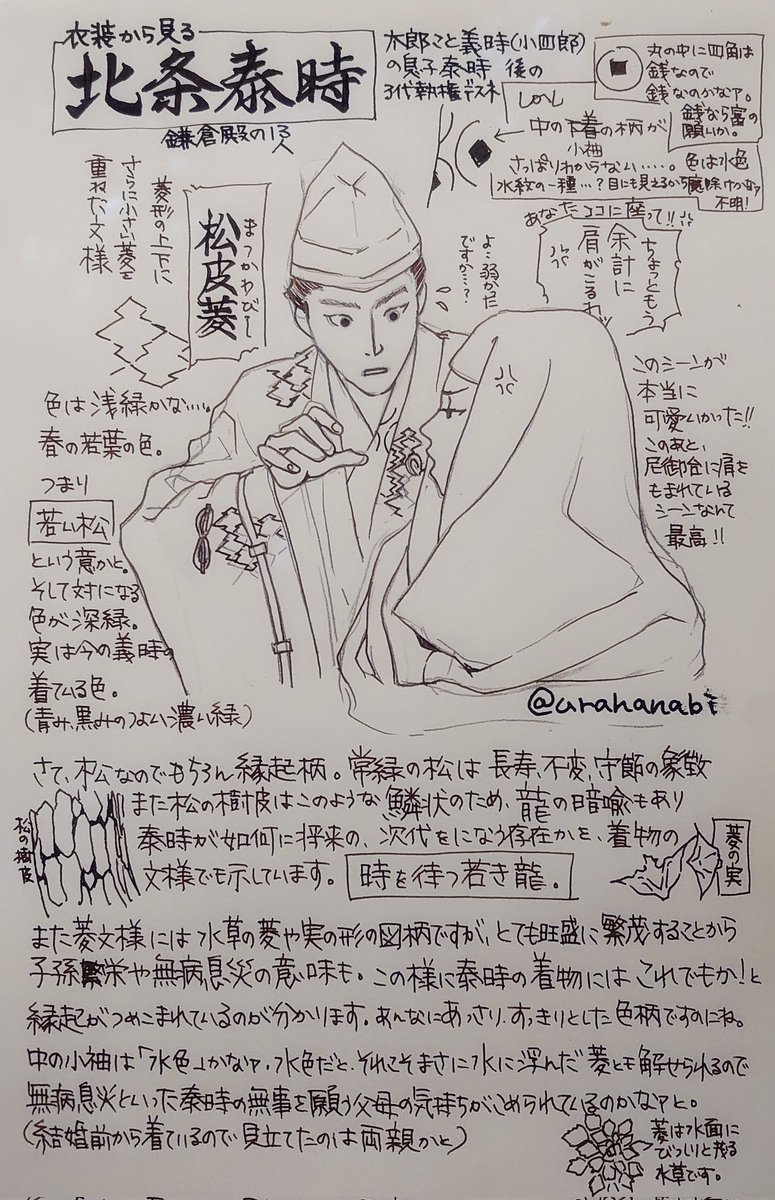 衣装から見る
北条泰時
鎌倉殿の13人
太郎こと義時(小四郎)
の息子泰時 後の
3代執権デスネ
丸の中に四角は
銭なので
銭なのかなァ。
銭なら富の
願いか。
← 中の下着の柄が
小袖
さっぱりわからない……。
色は水色
水紋の一種…?目にも見えるから魔除けかなァ
不明!
あなたココに座って!!
ちょっともう
余計に
肩がこるわッ
よ…弱かった
ですか…?
まつかわびし
松皮菱
菱形の上下に
さらに小さい菱を
重ねた文様
色は浅緑かな…。
春の若葉の色。
つまり
若い松
という意かと。
そして対になる
色が深緑。
実は今の義時の
着ている色。
(青み、黒みのつよい濃い緑)
このシーンが
本当に
可愛いかった!!
このあと、
尼御台に肩を
もまれている
シーンなんて
最高!!
@urahanabi
さて、松なのでもちろん縁起柄。常緑の松は長寿、不変、守節の象徴
また松の樹皮はこのような鱗状のため、龍の暗喩もあり
泰時が如何に将来の、次代をになう存在かを、着物の
文様でも示しています。 時を待つ若き龍。
松の樹皮
菱の実
また菱文様には水草の菱や実の形の図柄ですが、とても旺盛に繁茂することから
子孫繁栄や無病息災の意味も。この様に泰時の着物にはこれでもか!と
縁起がつめこまれているのが分かります。あんなにあっさり、すっきりとした色柄ですのにね。
中の小袖は「水色」かなァ、水色だと、それこそまさに水に浮んだ菱とも解せられるので
無病息災といった泰時の無事を願う父母の気持ちがこめられているのかなァと。
(結婚前から着ているので見立てたのは両親かと)
菱は水面に
びっしりと茂る
水草です。